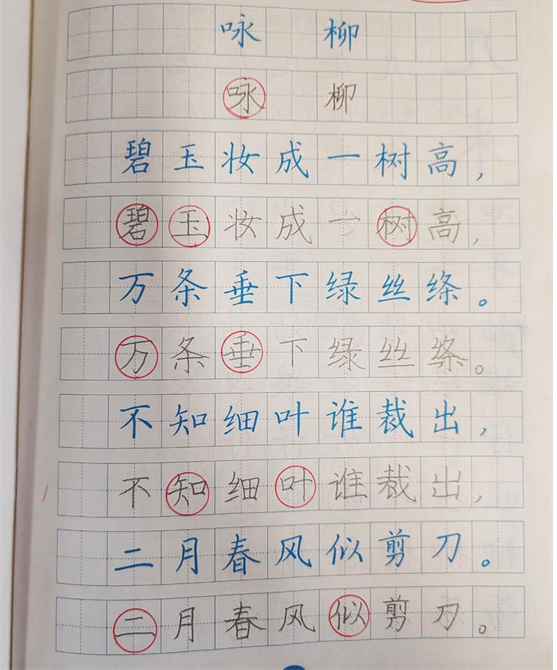 咏柳
咏柳
碧玉妆成一树高，
碧玉妆成一树高，
万条垂下绿丝绦。
万条垂下绿丝绦。
不知细叶谁裁出，
不知细叶谁裁出，
二月春风似剪刀。
二月春风似剪刀。